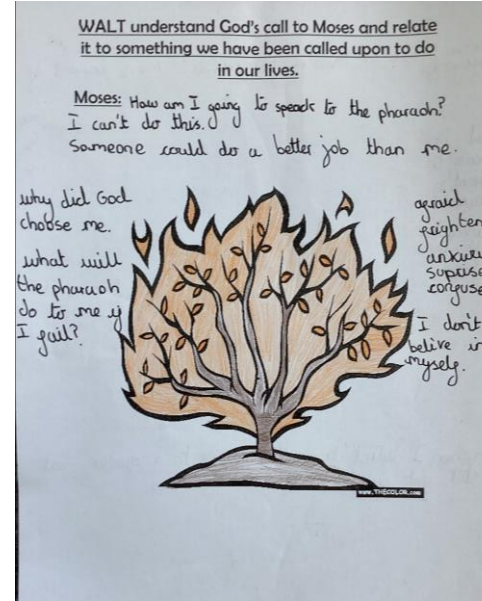 WALT understand God's call to Moses and relate
it to something we have been called upon to do
in our lives.
Moses: How am I going to speack to the pharaoh?
I can't do this.
Someone could do a better job than me.
why did God
choose me.
what will
the pharaoh
do to me if
I fail?
afraid
frighten
suprise
confuse
I don't
belive in
myself.
www.THECOLOR.com